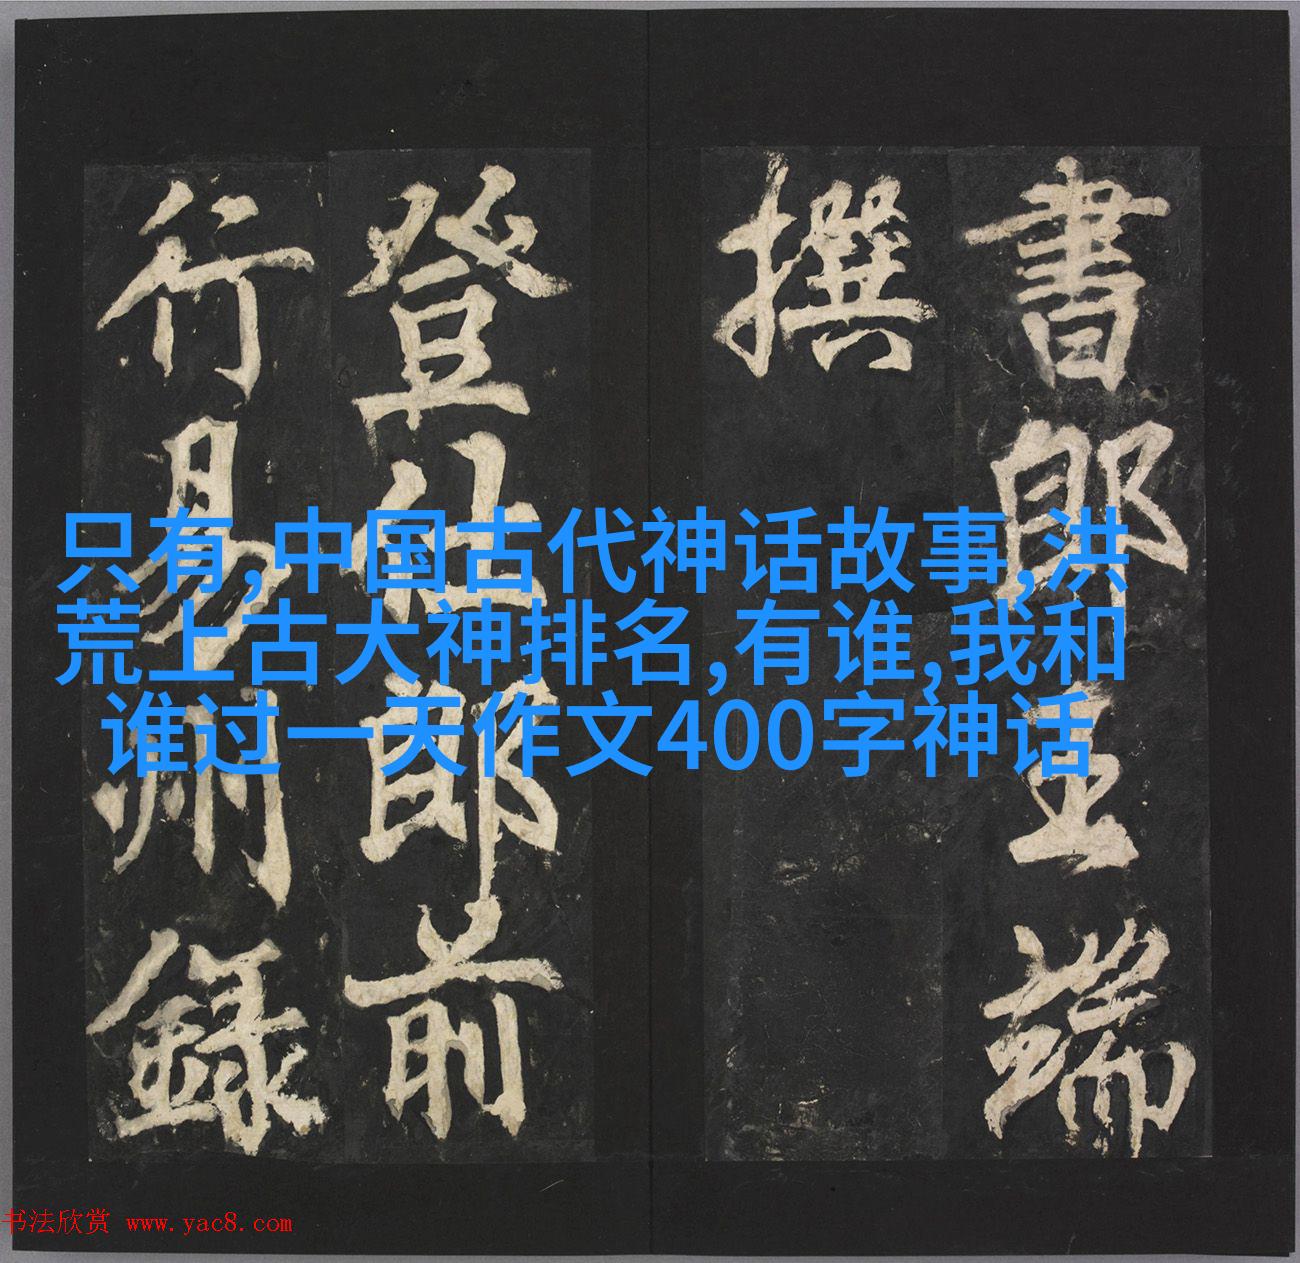 書郎王端
撰
登仕郎前
行易州録
只有,中国古代神话故事,洪
荒上古大神排名,有谁,我和
谁过一天作文400字神话
书法欣赏 www.yac8.com